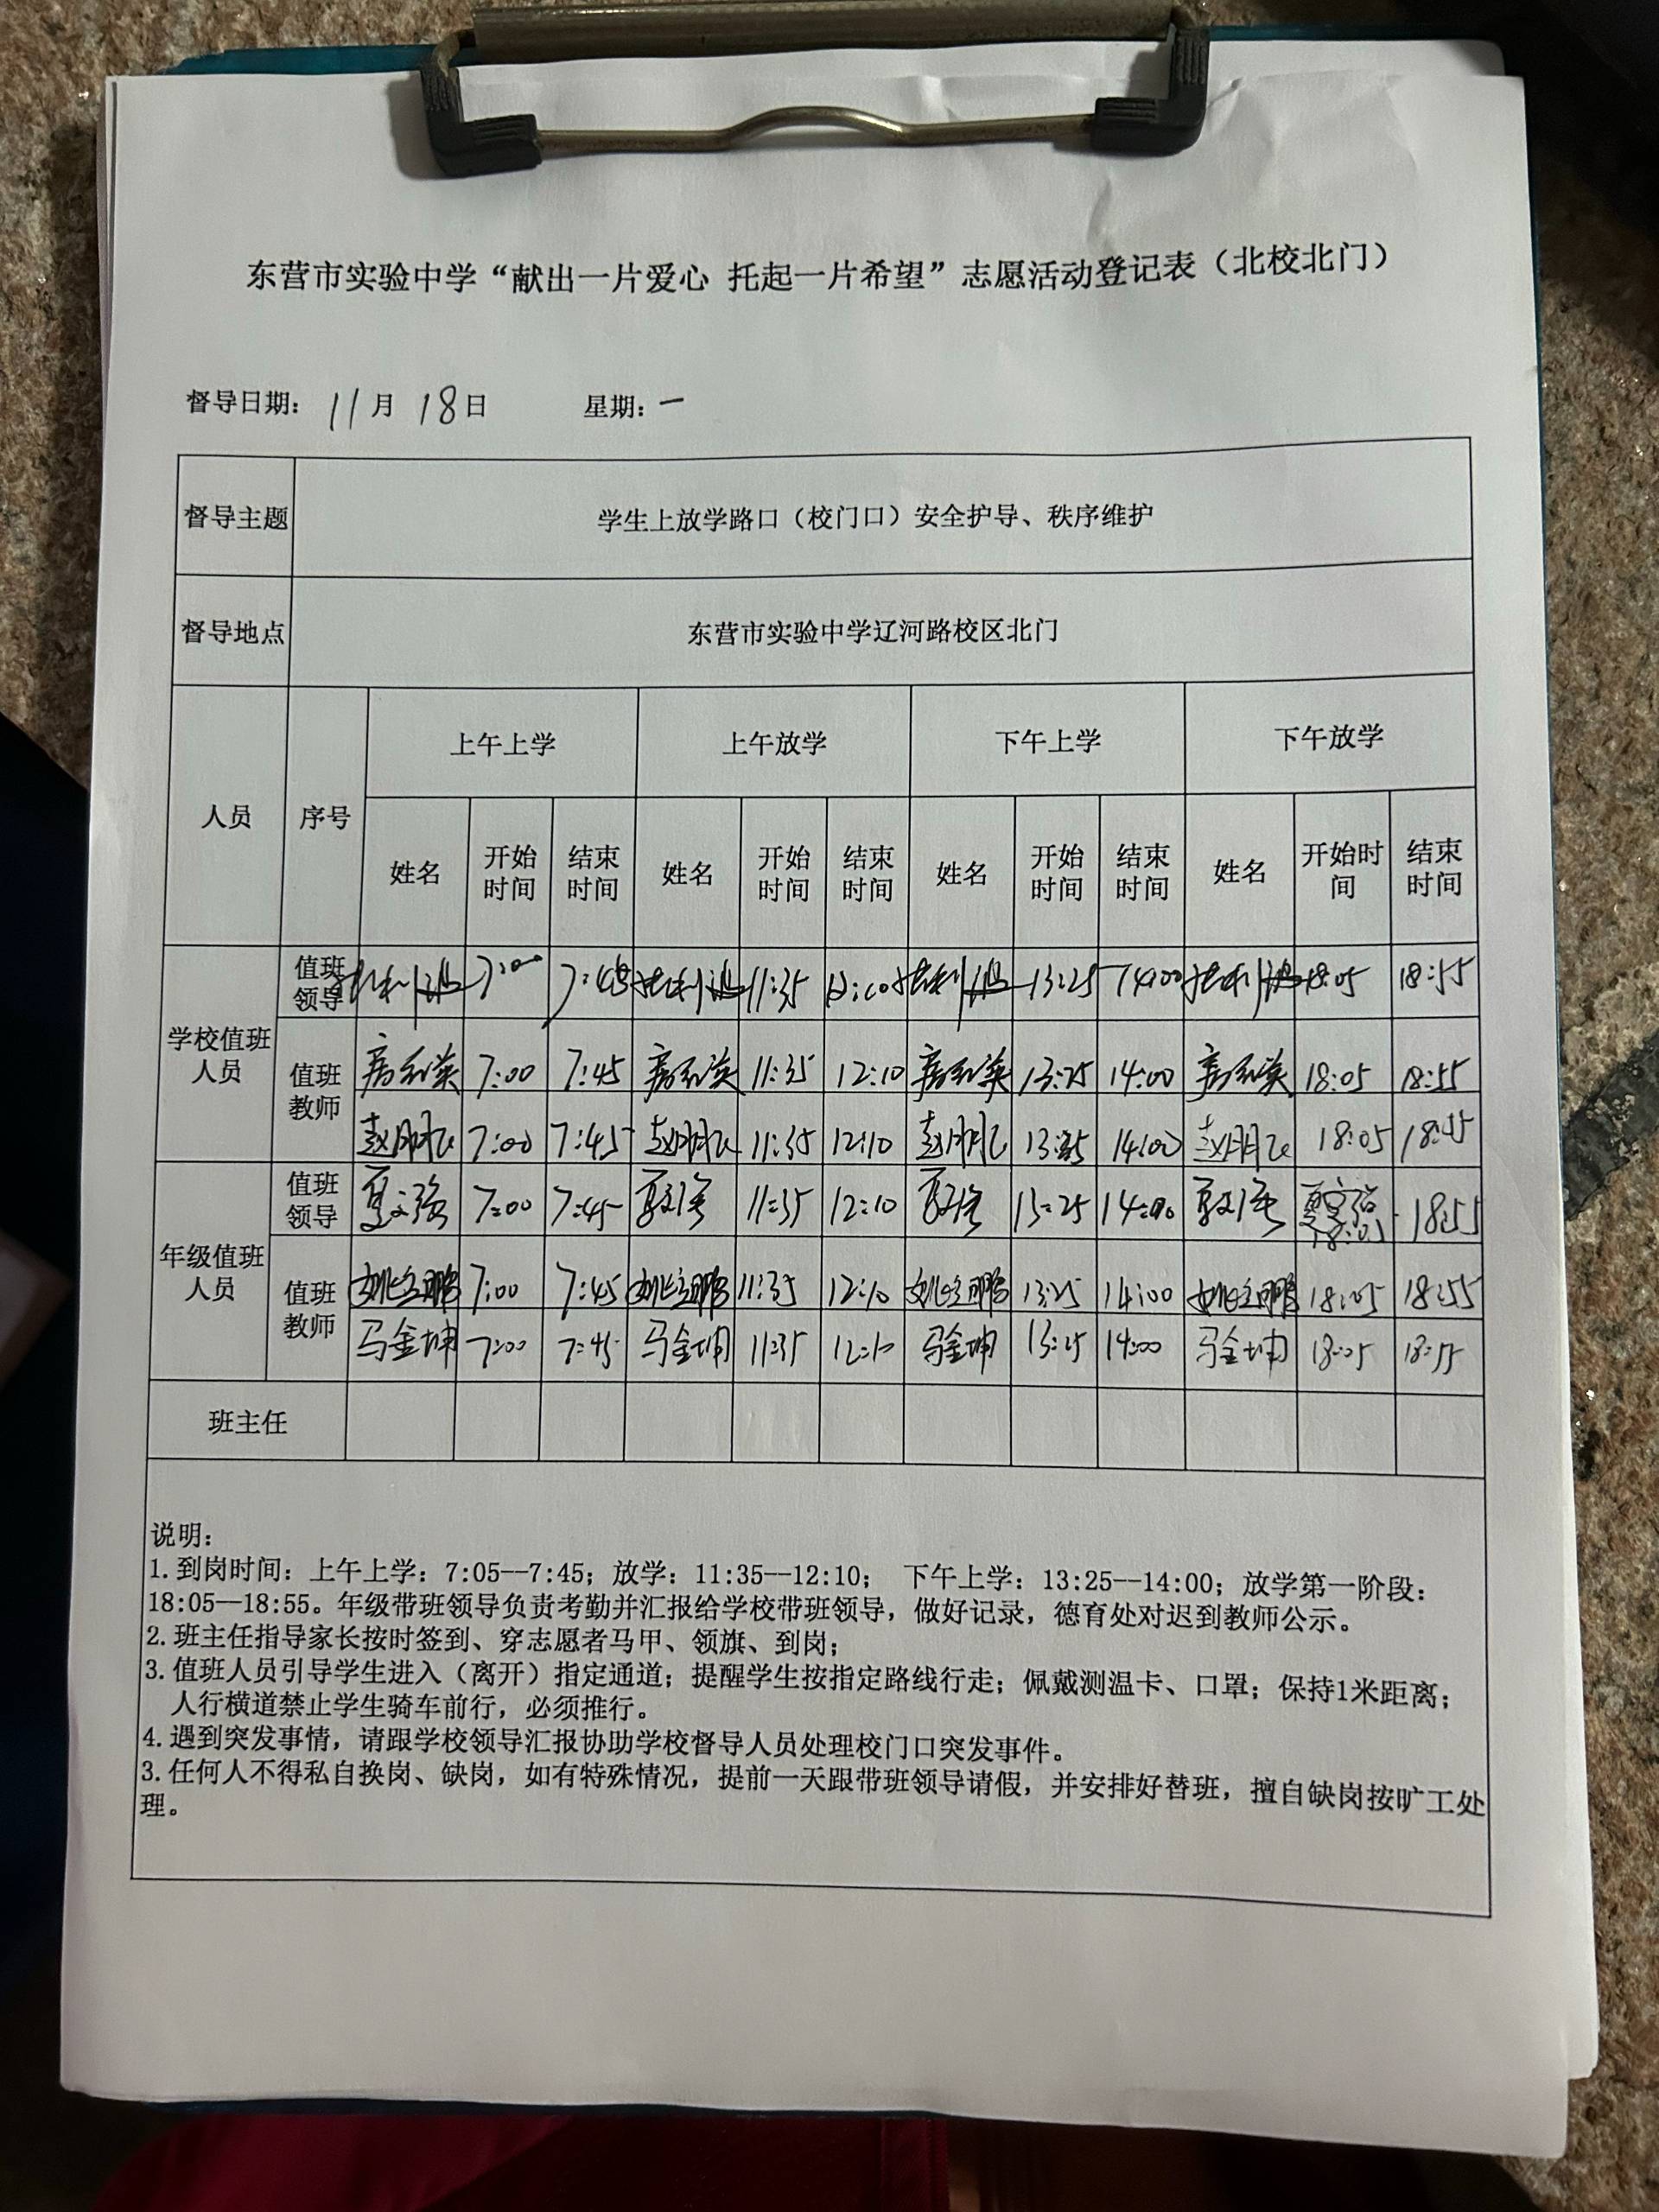 东营市实验中学“献出一片爱心 托起一片希望”志愿活动登记表（北校北门）
督导日期：11月18日 星期：一
督导主题 学生上放学路口（校门口）安全护导、秩序维护
督导地点 东营市实验中学辽河路校区北门
人员 序号 上午上学 上午放学 下午上学 下午放学
姓名 开始时间 结束时间 姓名 开始时间 结束时间 姓名 开始时间 结束时间 姓名 开始时间 结束时间
学校值班人员 值班领导 7:00 7:45 11:35 13:25 14:00 18:05 18:55
值班教师 7:00 7:45 11:35 12:10 13:25 14:00 18:05 18:55
7:00 7:45 11:35 12:10 14:00 18:05
年级值班人员 值班领导 夏文强 7:00 7:45 11:35 12:10 13:25 14:00 18:05 18:55
值班教师 姚立鹏 7:00 7:45 姚立鹏 11:35 12:10 姚立鹏 13:25 14:00 姚立鹏 18:05 18:55
马金坤 7:00 7:45 马金坤 11:35 12:10 马金坤 13:25 14:00 马金坤 18:05 18:55
班主任
说明：
1.到岗时间：上午上学：7:05--7:45；放学：11:35--12:10； 下午上学：13:25--14:00；放学第一阶段：
18:05--18:55。年级带班领导负责考勤并汇报给学校带班领导，做好记录，德育处对迟到教师公示。
2.班主任指导家长按时签到、穿志愿者马甲、领旗、到岗；
3.值班人员引导学生进入（离开）指定通道；提醒学生按指定路线行走；佩戴测温卡、口罩；保持1米距离；
人行横道禁止学生骑车前行，必须推行。
4.遇到突发事情，请跟学校领导汇报协助学校督导人员处理校门口突发事件。
3.任何人不得私自换岗、缺岗，如有特殊情况，提前一天跟带班领导请假，并安排好替班，擅自缺岗按旷工处
理。